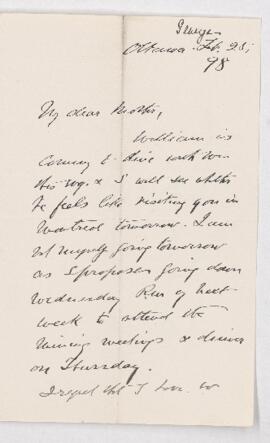 George
Ottawa. Feb. 28,
98
My dear Mother,
William is
coming to dine with me
this evg. & I will see whether
he feels like visiting you in
Montreal tomorrow. I am
not myself going tomorrow
as I propose going down
Wednesday P.m. of next
week to attend the
mining meetings & dinner
on Thursday.
I regret that I have